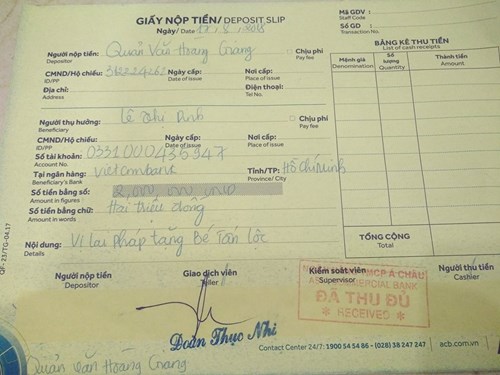 GIẤY NỘP TIỀN/ DEPOSIT SLIP
Ngày/ Date
Mã GDV :
Staff Code
Số GD :
Transaction No.
Người nộp tiền: Quản Văn Hoàng Giang Chịu phí
Depositor Pay fee
CMND/Hộ chiếu: Ngày cấp: Nơi cấp:
ID/PP Date of issue Place of issue
Địa chỉ: Điện thoại:
Address Tel No.
Người thụ hưởng: Lê Thị Chịu phí
Beneficiary Pay fee
CMND/Hộ chiếu: Ngày cấp: Nơi cấp:
ID/PP Date of issue Place of issue
Số tài khoản: 0331000435947
Account No.
Tại ngân hàng: Vietcombank Tỉnh/TP: Hồ Chí Minh
Beneficiary's Bank Province/ City
Số tiền bằng số: 2,000,000 VND
Amount in figures
Số tiền bằng chữ: Hai triệu đồng
Amount in words
Nội dung: Vi Lai Pháp tặng Bé Tấn Lộc
Details
BẢNG KÊ THU TIỀN
List of cash receipts
Mệnh giá Số lượng Thành tiền
Denomination Quantity Amount
TỔNG CỘNG
Total
Người nộp tiền Giao dịch viên Kiểm soát viên Người thu tiền
Depositor Teller Supervisor Cashier
MCP Á CHÂU
COMMERCIAL BANK
ĐÃ THU ĐỦ
* RECEIVED *
Đoàn Thục Nhi
Quản Văn Hoàng Giang
Contact Center 24/7: 1900 54 54 86 - (028) 38 247 247 | acb.com.vn
QF-23/TG-04.17